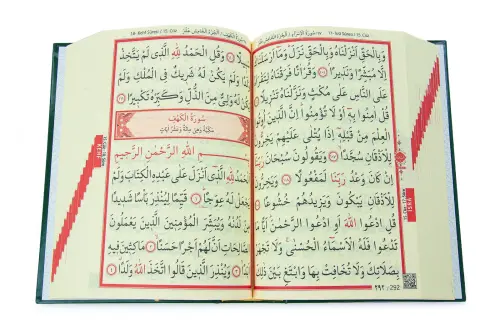 17- İsrâ Sûresi / 15. Cüz
وَبِالْحَقِّ اَنْزَلْنَاهُ وَبِالْحَقِّ نَزَلَ وَمَا اَرْسَلْنَا
اِلَّا مُبَشِّرًا وَنَذِيرًا ﴿١٠٥﴾ وَقُرْاٰنًا فَرَقْنَاهُ لِتَقْرَاَ
عَلَى النَّاسِ عَلٰى مُكْثٍ وَنَزَّلْنَاهُ تَنْزِيلًا
قُلْ اٰمِنُوا بِهِ اَوْ لَا تُؤْمِنُوا اِنَّ الَّذِينَ
الْعِلْمَ مِنْ قَبْلِهِ اِذَا يُتْلٰى عَلَيْهِمْ يَخِرُّونَ
لِلْاَذْقَانِ سُجَّدًا ﴿١٠٧﴾ وَيَقُولُونَ سُبْحَانَ
اِنْ كَانَ وَعْدُ رَبِّنَا لَمَفْعُولًا ﴿١٠٨﴾ وَيَخِرُّونَ
لِلْاَذْقَانِ يَبْكُونَ وَيَزِيدُهُمْ خُشُوعًا
قُلِ ادْعُوا اللّٰهَ اَوِ ادْعُوا الرَّحْمٰنَ اَيًّا مَا
تَدْعُوا فَلَهُ الْاَسْمَاءُ الْحُسْنٰى وَلَا تَجْهَرْ
بِصَلَاتِكَ وَلَا تُخَافِتْ بِهَا وَابْتَغِ بَيْنَ ذٰلِكَ
٢٩٢ : 292
18- Kehf Sûresi / 15. Cüz
وَقُلِ الْحَمْدُ لِلّٰهِ الَّذِي لَمْ يَتَّخِذْ
وَلَدًا وَلَمْ يَكُنْ لَهُ شَرِيكٌ فِي الْمُلْكِ وَلَمْ
يَكُنْ لَهُ وَلِيٌّ مِنَ الذُّلِّ وَكَبِّرْهُ تَكْبِيرًا ﴿١١١﴾
سُورَةُ الْكَهْفِ
بِسْمِ اللّٰهِ الرَّحْمٰنِ الرَّحِيمِ
اَلْحَمْدُ لِلّٰهِ الَّذِي اَنْزَلَ عَلٰى عَبْدِهِ الْكِتَابَ وَلَمْ
يَجْعَلْ لَهُ عِوَجًا ﴿١﴾ قَيِّمًا لِيُنْذِرَ بَاْسًا شَدِيدًا
مِنْ لَدُنْهُ وَيُبَشِّرَ الْمُؤْمِنِينَ الَّذِينَ يَعْمَلُونَ
الصَّالِحَاتِ اَنَّ لَهُمْ اَجْرًا حَسَنًا ﴿٢﴾ مَاكِثِينَ فِيهِ
اَبَدًا ﴿٣﴾ وَيُنْذِرَ الَّذِينَ قَالُوا اتَّخَذَ اللّٰهُ وَلَدًا ﴿٤﴾